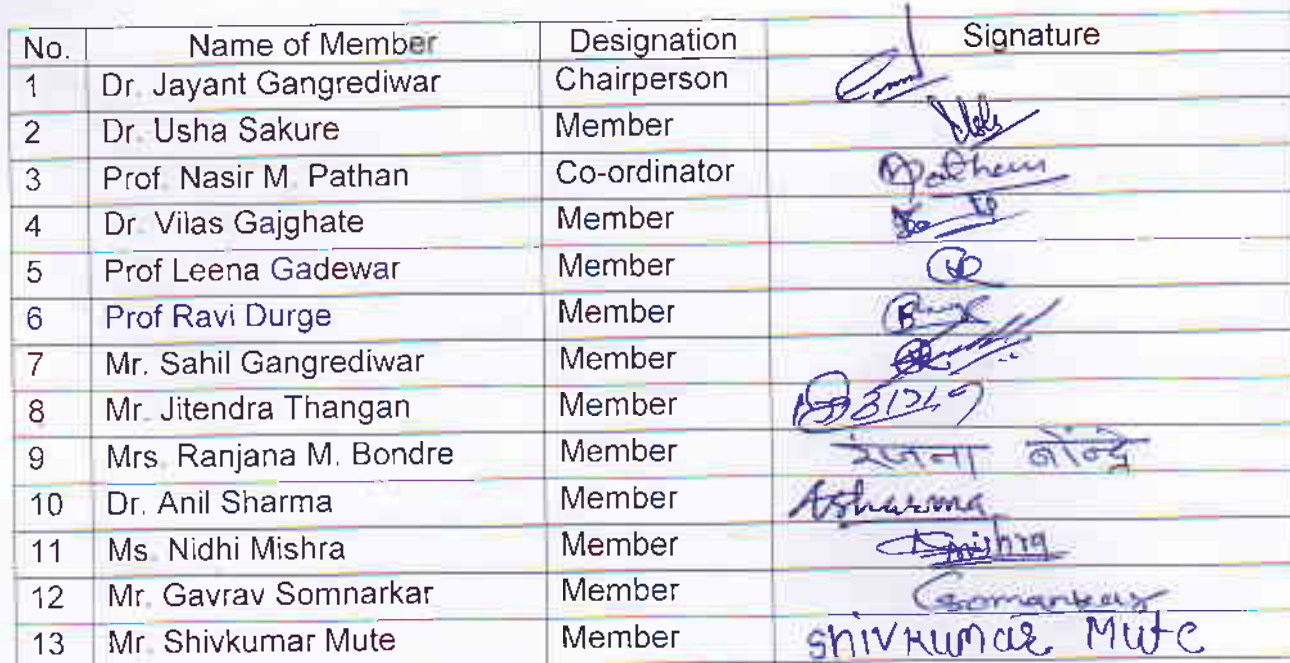 No. Name of Member Designation Signature
1 Dr. Jayant Gangrediwar Chairperson
2 Dr. Usha Sakure Member
3 Prof. Nasir M. Pathan Co-ordinator Pathan
4 Dr. Vilas Gajghate Member
5 Prof Leena Gadewar Member
6 Prof Ravi Durge Member
7 Mr. Sahil Gangrediwar Member
8 Mr. Jitendra Thangan Member
9 Mrs. Ranjana M. Bondre Member रंजना बोंन्द्रे
10 Dr. Anil Sharma Member Asharma
11 Ms. Nidhi Mishra Member mishra
12 Mr. Gavrav Somnarkar Member
13 Mr. Shivkumar Mute Member Shivkumar Mute